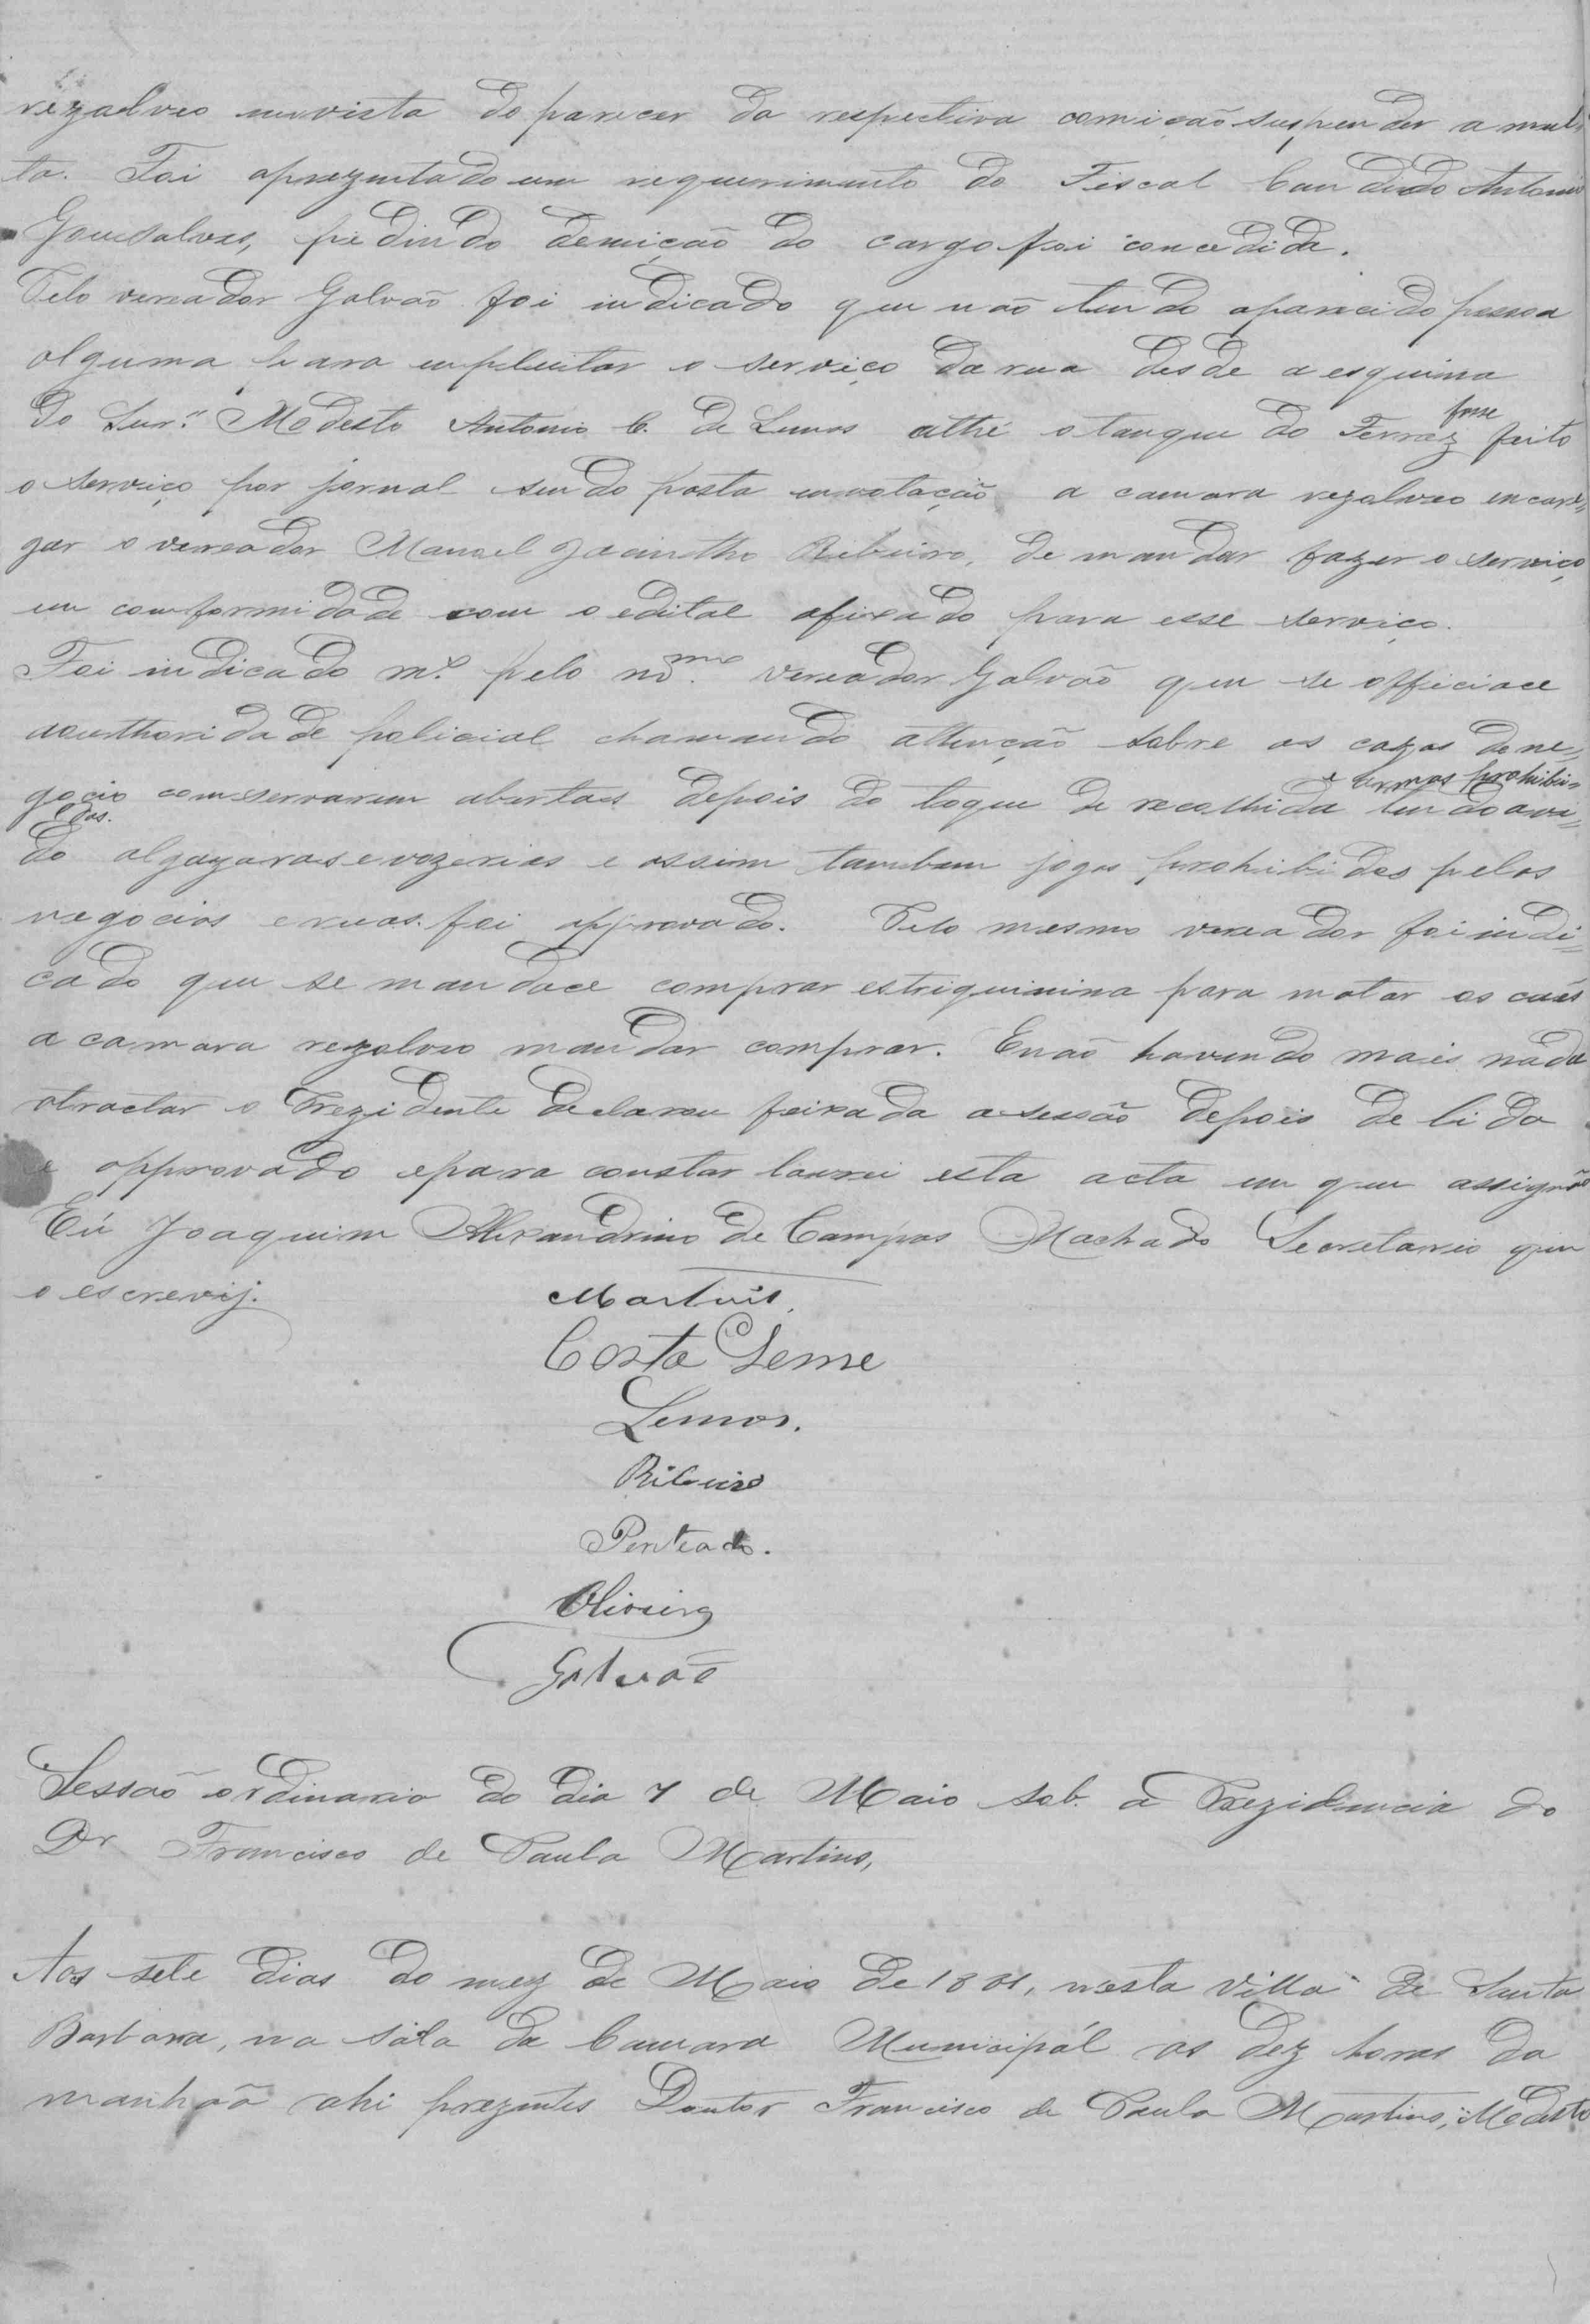 rezolveo em vista do parecer da respectiva comição suspender a mul-
ta. Foi aprezentado um requerimento do Fiscal Candido Antonio
Gonsalves, pedindo demição do cargo foi concedida.
Pelo vereador Galvão foi indicado que não tendo aparecido pessoa
alguma para impleitar o serviço da rua desde a esquina
fosse
do Snr.^ Modesto Antonio C. de Lemos athé o tanque do Ferraz feito
o serviço por jornal sendo posta em votação a camara rezolveo encarre=
gar o vereador Manoel Jacintho Ribeiro, de mandar fazer o serviço
em comformidade com o edital afixado para esse serviço.
Foi indicado m.^o pelo m.^mo vereador Galvão que se officiace
a outhoridade policial chamando attenção sobre as cazas de ne=
e armas prohibi=
gocio comservarem abertas depois do toque de recolhida tendo avi=
das.
do algazaras e vozerias e assim tambem jogos prohibidos pelos
negocios e ruas. foi approvado. Pelo mesmo vereador foi indi=
cado que se mandace comprar estriquinina para matar os cães
a camara rezolveo mandar comprar. E não havendo mais nada
a tractar o Prezidente declarou feixada a sessão depois de lida
e approvado e para constar lavrei esta acta em que assignão
Eu Joaquim Alexandrino de Campos Machado Secretario que
o escrevij.
Martins.
Costa Leme
Lemos.
Ribeiro
Penteado.
Oliveira
Galvão
Sessão ordinaria do dia 7 de Maio sob. a Prezidencia do
Dr Francisco de Paula Martins,
Aos sete dias do mez de Maio de 1881, nesta Villa de Santa
Barbara, na sala da Camara Municipál as dez horas da
manhãa ahi prezentes Doutor Francisco de Paula Martins, Modesto